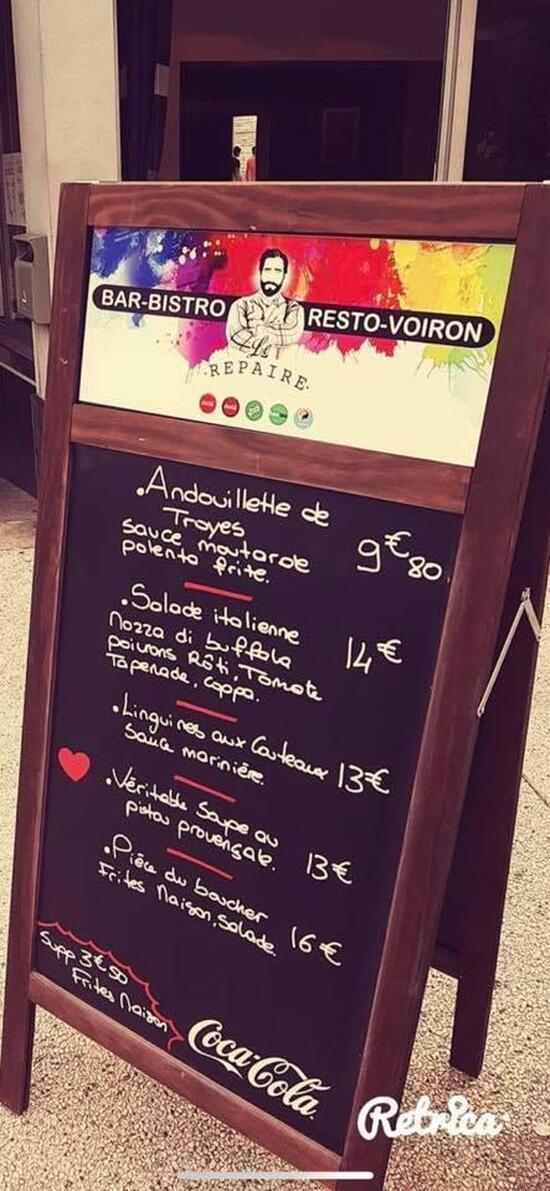 BAR-BISTRO RESTO-VOIRON
Le
REPAIRE
.Andouillette de
Troyes
sauce moutarde
polenta frite.
9€80
.Salade italienne
Mozza di buffola
poivrons Rôti, Tomate
Tapenade, coppa.
14€
.Linguines aux Couteaux
Sauce marinière.
13€
.Véritable Soupe au
pistou provençale.
13€
.Pièce du boucher
Frites Maison, salade.
16€
Supp 3€50
Frites Maison
Coca-Cola
Retrica